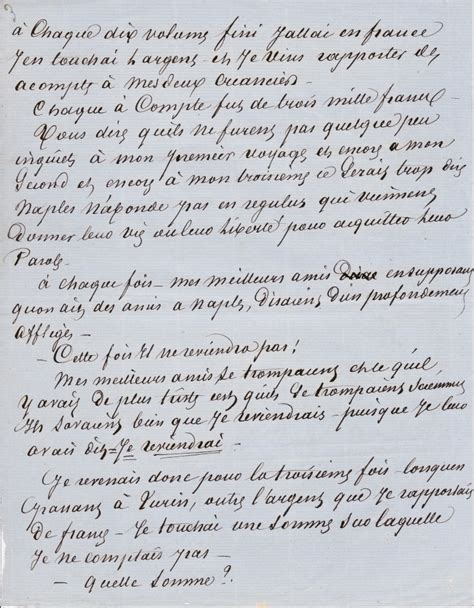 à Chaque dix volumes fini J'allai en france
J'en touchai l'argent et Je vins rapporter des
acomptes à mes deux creanciers
Chaque à Compte fut de trois mille francs
Vous dire qu'ils ne furent pas quelque peu
inquiets à mon premier voyage et encore a mon
second et encore à mon troisieme ce Serait trop dire
Naples n'abonde pas en regulus qui viennent
donner leur vie ou leur liberté pour acquitter leur
Parole
à chaque fois mes meilleurs amis en supposant
qu'on ait des amis a Naples, disaient d'un profondement
affligés
Cette fois il ne reviendra pas!
Mes meilleurs amis se trompaient et ce qu'il
y avait de plus triste est qu'ils se trompaient sciemment
Ils savaient bien que Je reviendrais puisque Je leur
avais dit = Je reviendrai
Je revenais donc pour la troisieme fois lorsque
passant à Turin, outre l'argent que Je rapportais
de france Je touchai une somme sur laquelle
Je ne comptais pas
Quelle somme?